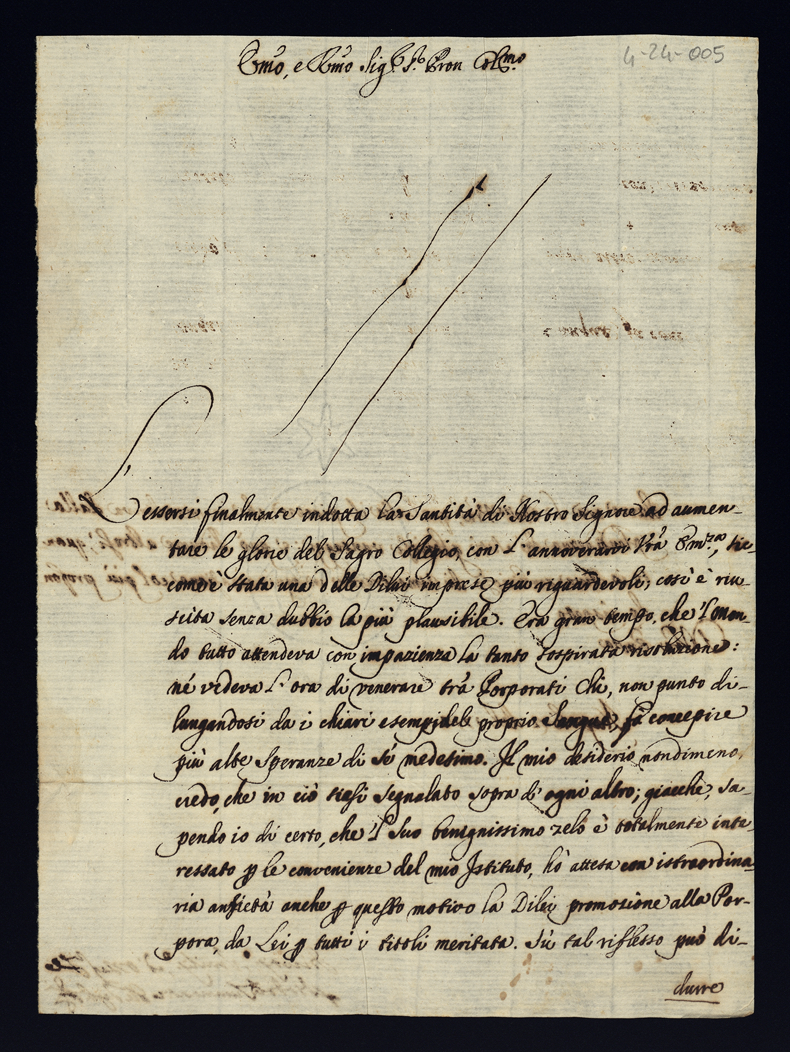 Emo, e Rmo Sigr. Pron Colmo.
4-24-005
L' essersi finalmente indotta la Santità di Nostro Signore ad aumen-
tare le glorie del Sagro Collegio, con l' annoverarvi Vrà Emza, sic-
com'è stata una delle Dilui imprese più riguardevoli, così è riu-
scita senza dubbio la più plausibile. Era gran tempo, che 'l mon-
do tutto attendeva con impazienza la tanto sospirata risoluzione:
né vedeva l' ora di venerare trà Porporati Chi, non punto di-
lungandosi da i chiari esempj del proprio Sangue, fà concepire
più alte speranze di sé medesimo. Il mio desiderio nondimeno,
credo, che in ciò siasi segnalato sopra d' ogni altro; giacche, sa-
pendo io di certo, che 'l Suo benignissimo zelo è totalmente inte-
ressato p le convenienze del mio Istituto, hò attesa con istraordina-
ria ansietà anche p questo motivo la Dilei promozione alla Por-
pora, da Lei p tutti i titoli meritata. Sù tal riflesso può di-
durre